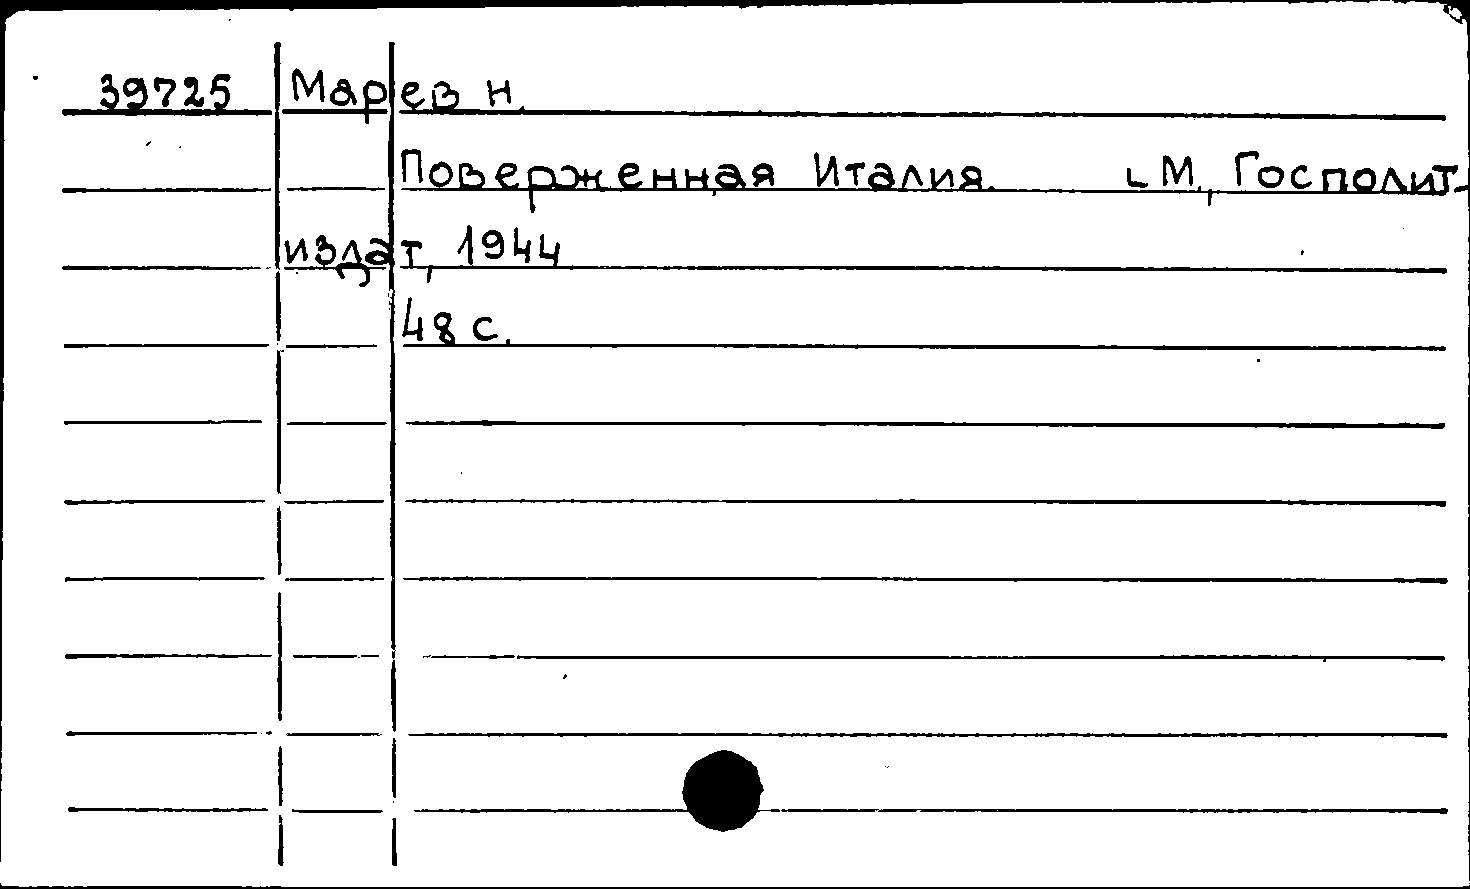 39725 Марев Н.
Поверженная Италия. [М., Госполит-
издат, 1944
48 с.